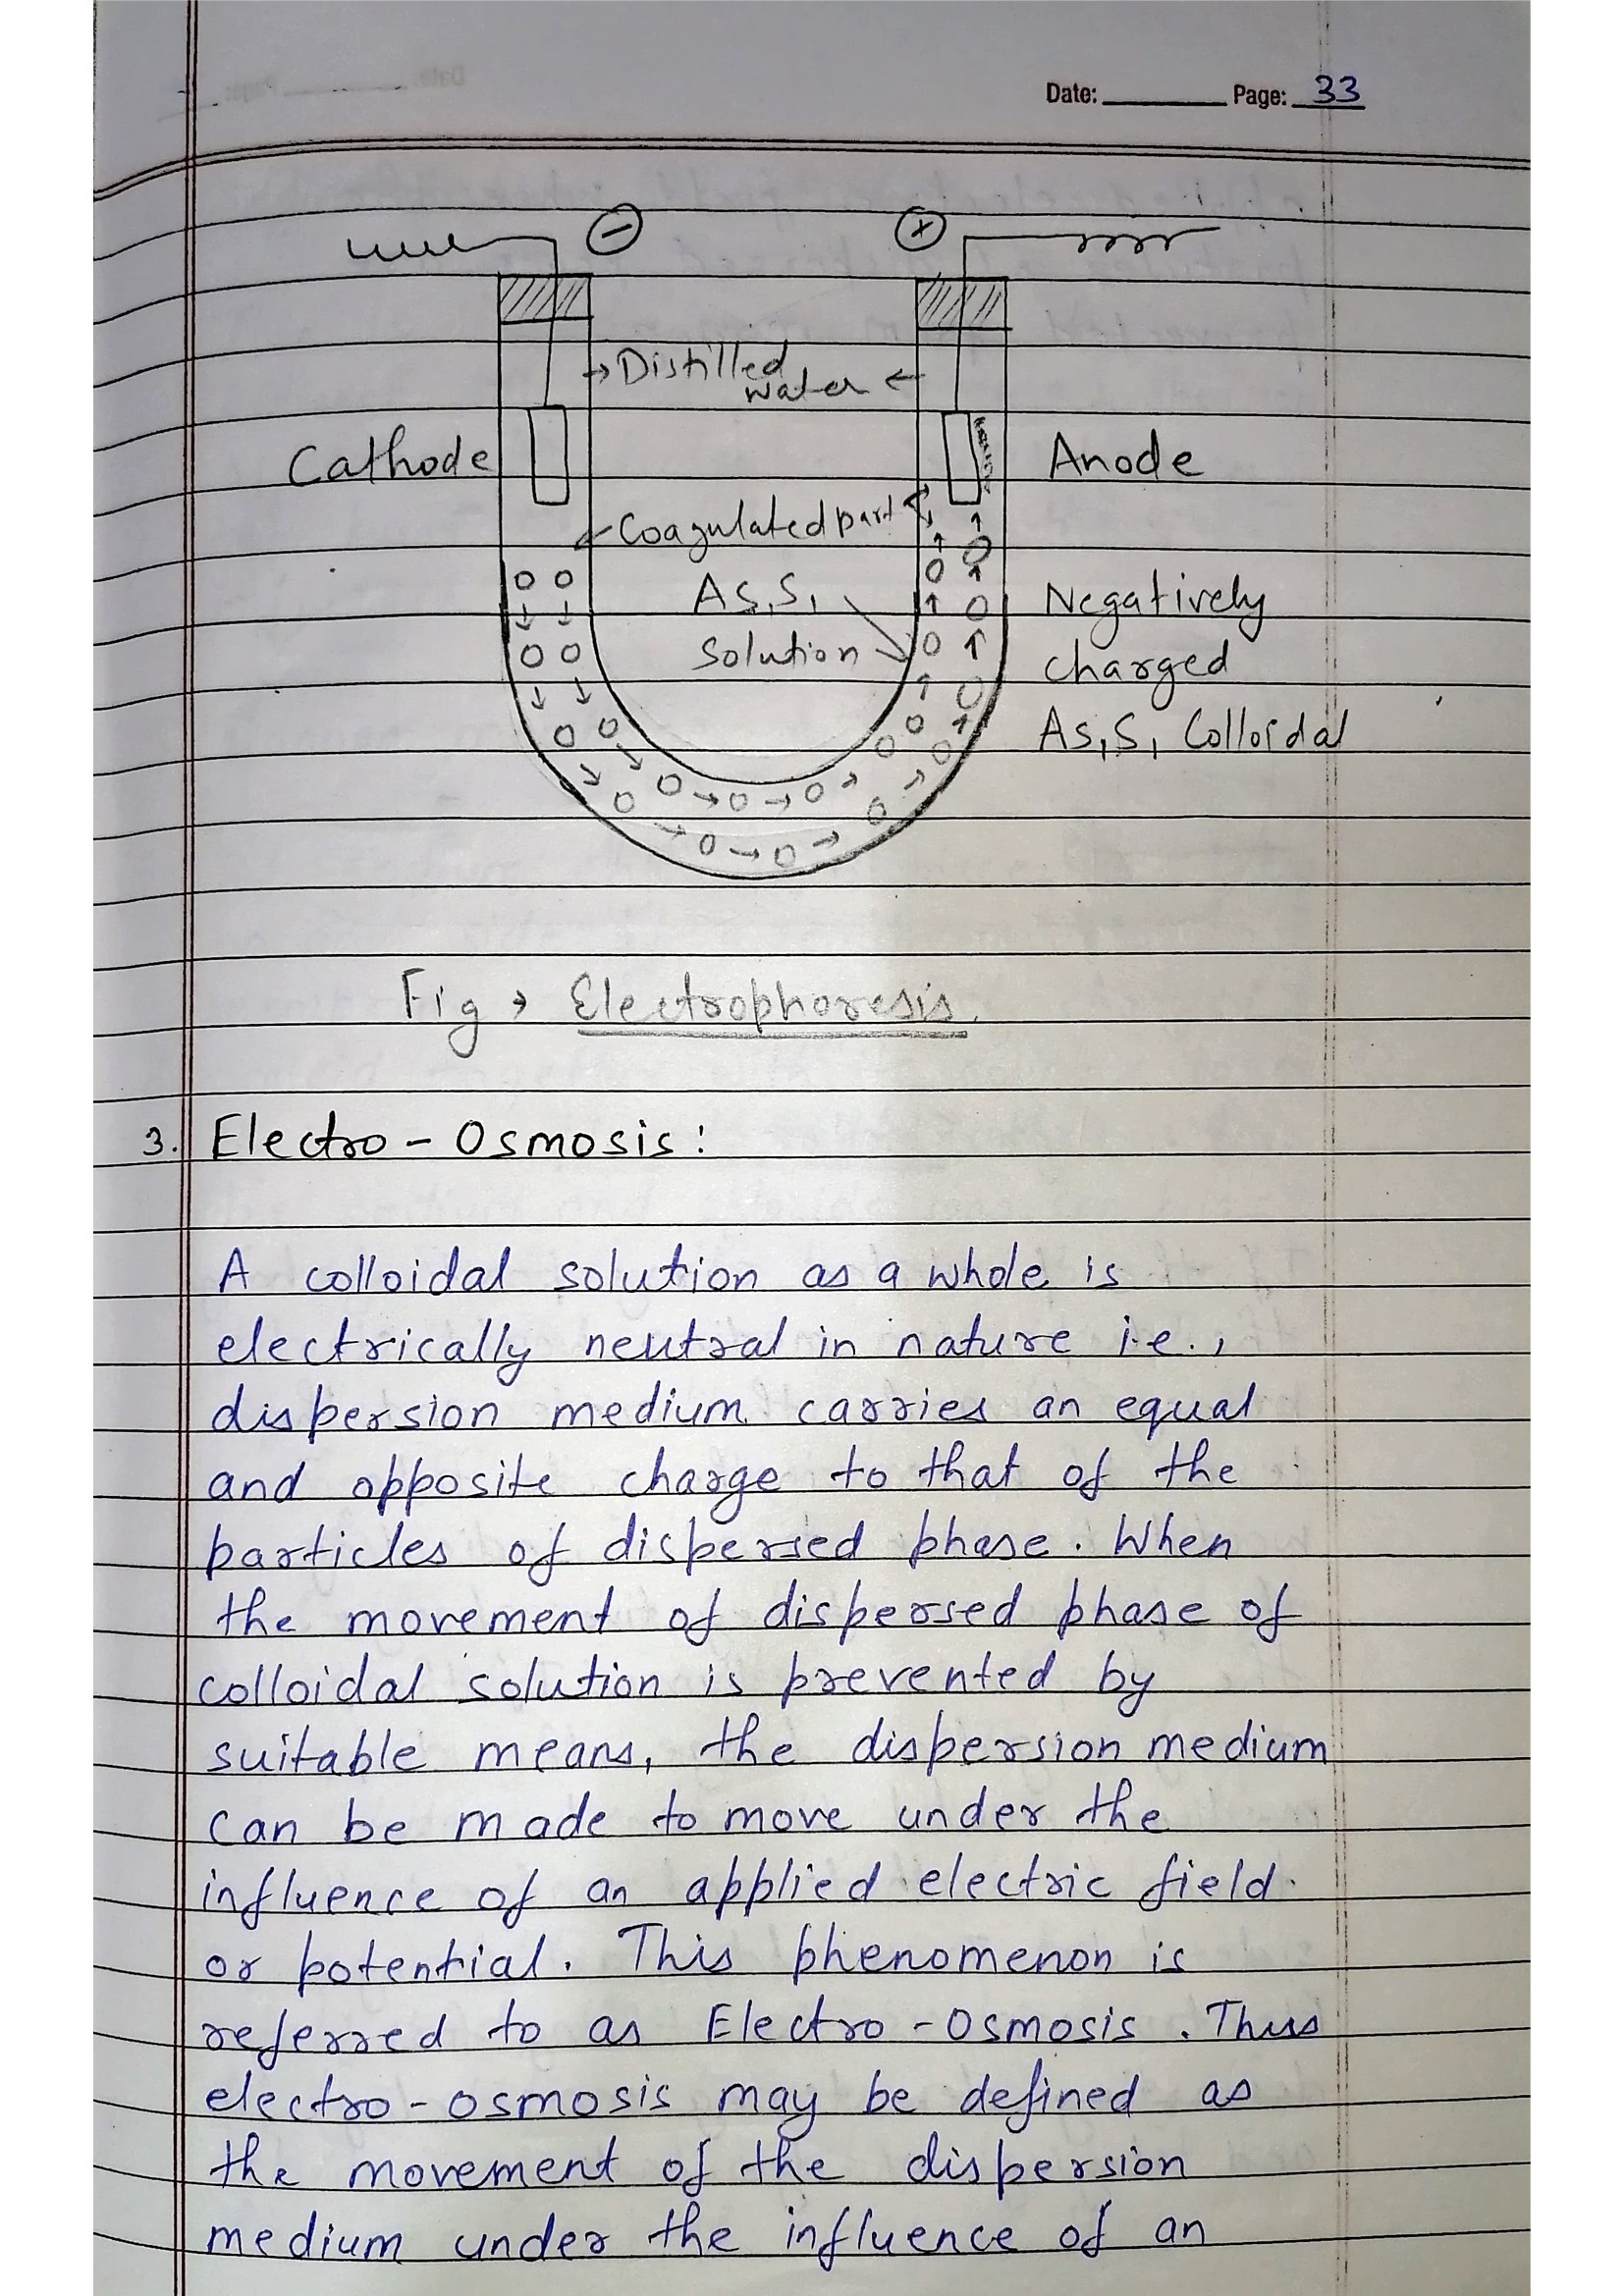 Date: Page: 33
⊖ ⊕
→ Distilled
water ←
Cathode
Anode
Coagulated part
As,S,
Solution
Negatively
charged
As,S, Colloidal
Fig → Electrophoresis.
3. Electro - Osmosis:
A colloidal solution as a whole is
electrically neutral in nature i.e.,
dispersion medium carries an equal
and opposite charge to that of the
particles of dispersed phase. When
the movement of dispersed phase of
colloidal solution is prevented by
suitable means, the dispersion medium
can be made to move under the
influence of an applied electric field
or potential. This phenomenon is
referred to as Electro - Osmosis. Thus
electro - osmosis may be defined as
the movement of the dispersion
medium under the influence of an